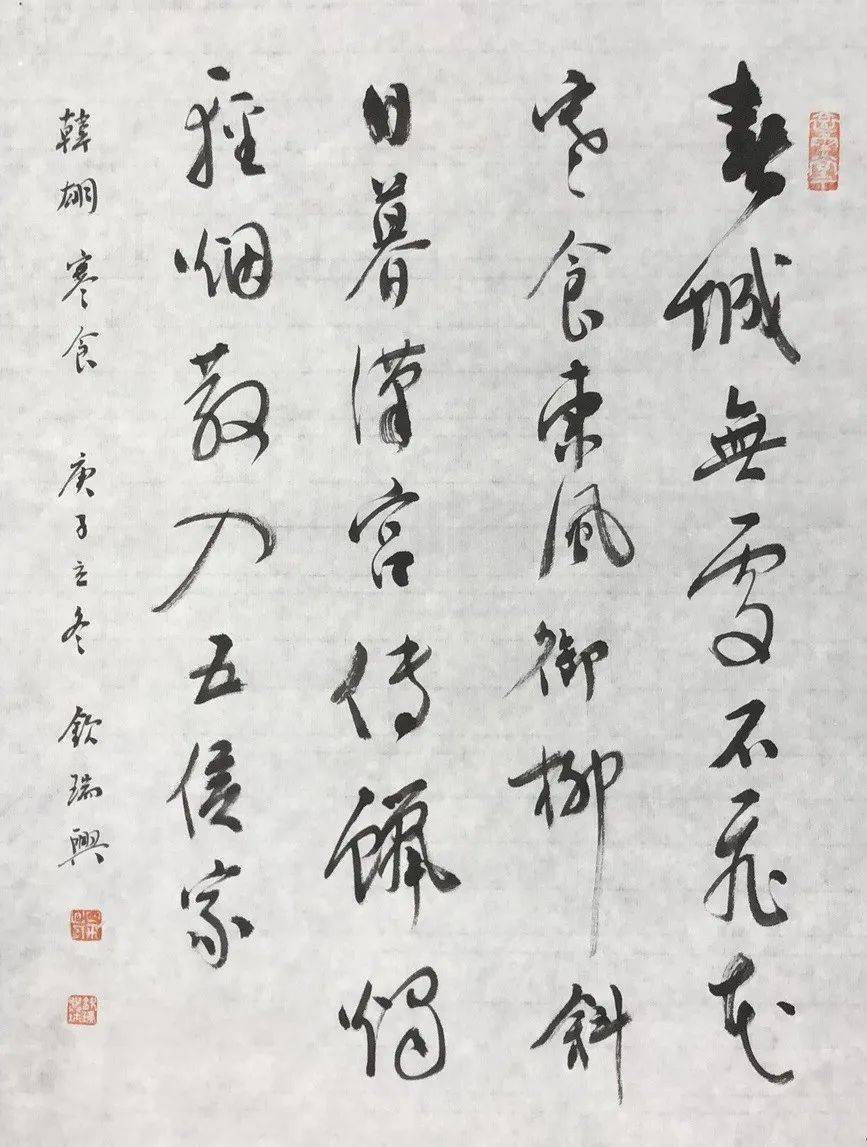 春城無處不飛花
寒食東風御柳斜
日暮漢宮傳蠟燭
輕烟散入五侯家
韓翃 寒食 庚子立冬 欽瑞興